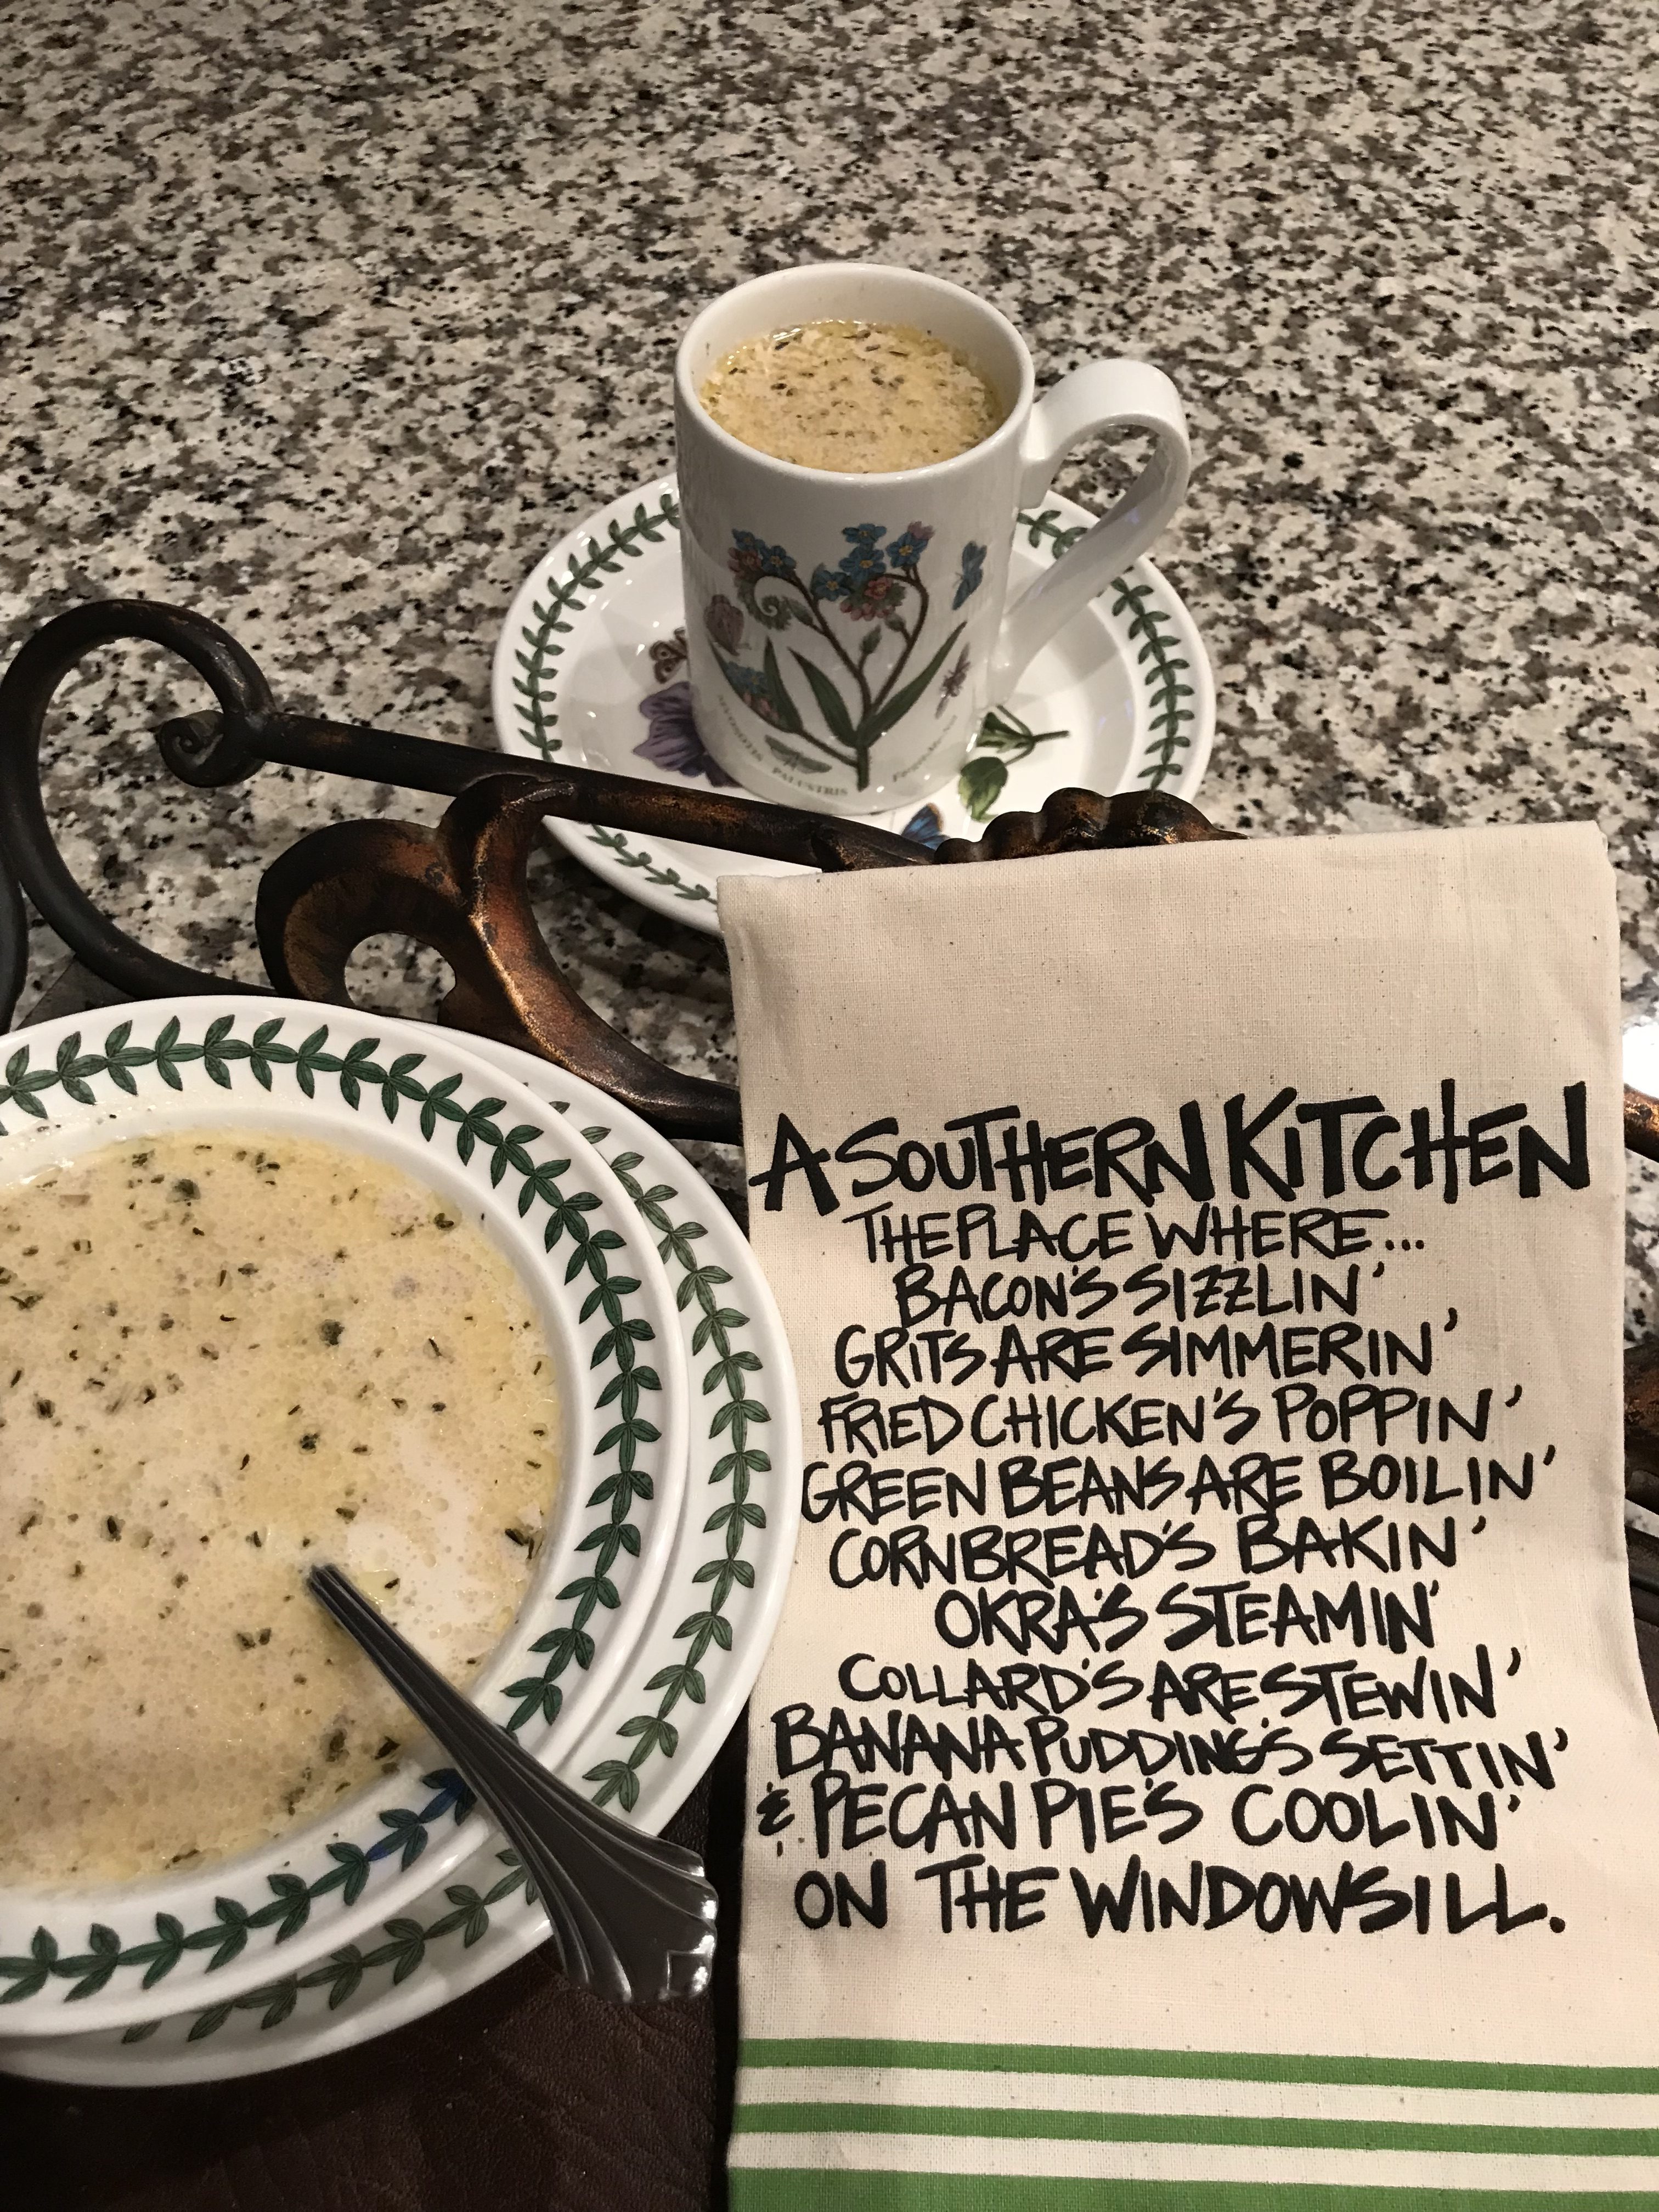 MYOSOTIS PALUSTRIS
A SOUTHERN KITCHEN
THE PLACE WHERE...
BACON'S SIZZLIN'
GRITS ARE SIMMERIN'
FRIED CHICKEN'S POPPIN'
GREEN BEANS ARE BOILIN'
CORNBREAD'S BAKIN'
OKRA'S STEAMIN'
COLLARD'S ARE STEWIN'
BANANA PUDDING'S SETTIN'
& PECAN PIE'S COOLIN'
ON THE WINDOWSILL.